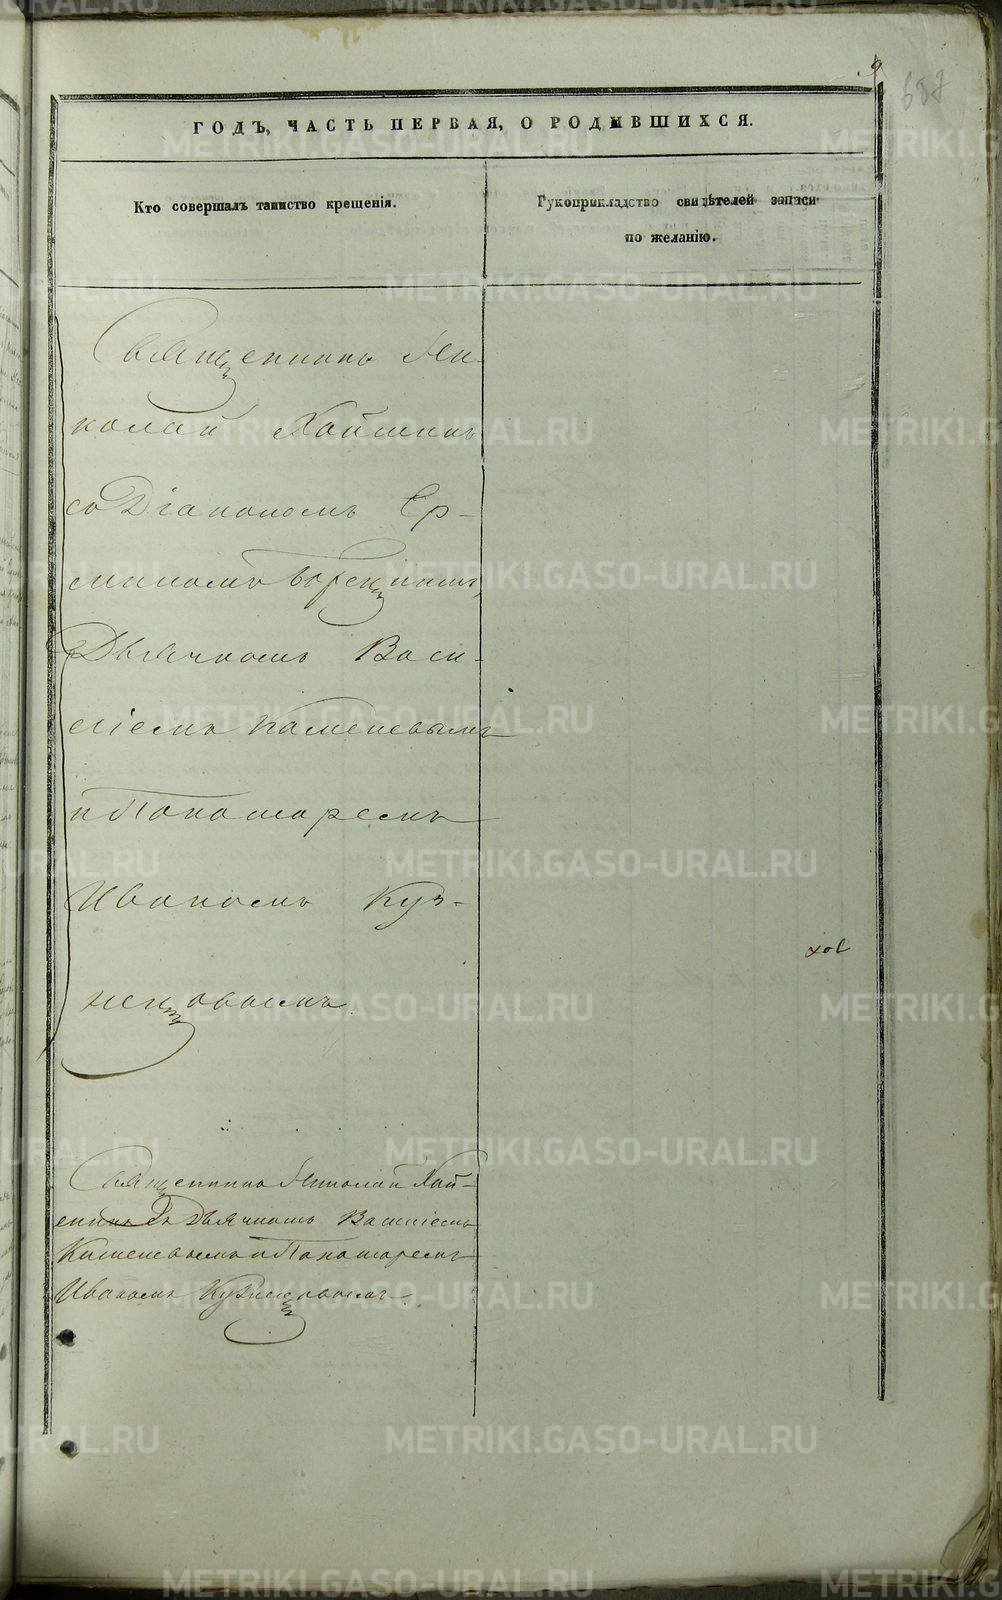 9
687
ГОДЪ, ЧАСТЬ ПЕРВАЯ, О РОДИВШИХСЯ.
Кто совершалъ таинство крещенія.
Рукоприкладство свидѣтелей записи
по желанію.
Священникъ Ни-
колай Хай
съ Діакономъ Ер-
миномъ
Дьячкомъ Васи-
ліемъ Каменевымъ
и Пономаремъ
Иваномъ Куз-
нецовымъ.
Священникъ Николай Хай-
съ Дьячкомъ Василіемъ
Каменевымъ и Пономаремъ
Иваномъ Кузнецовымъ.
METRIKI.GASO-URAL.RU